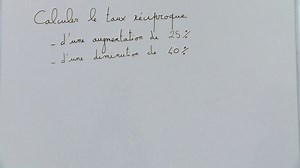 Calculer le taux réciproque
- d'une augmentation de 25 %
- d'une diminution de 40 %